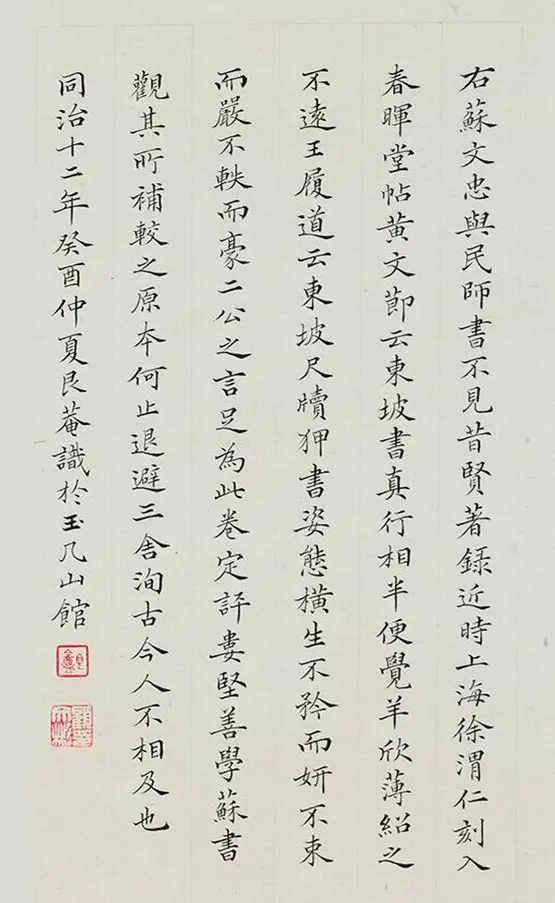 右蘇文忠與民師書不見昔賢著錄近時上海徐渭仁刻入
春暉堂帖黃文節云東坡書真行相半便覺羊欣薄紹之
不遠王履道云東坡尺牘狎書姿態橫生不矜而妍不束
而嚴不軼而豪二公之言足為此卷定評婁堅善學蘇書
觀其所補較之原本何止退避三舍洵古今人不相及也
同治十二年癸酉仲夏艮菴識於玉几山館